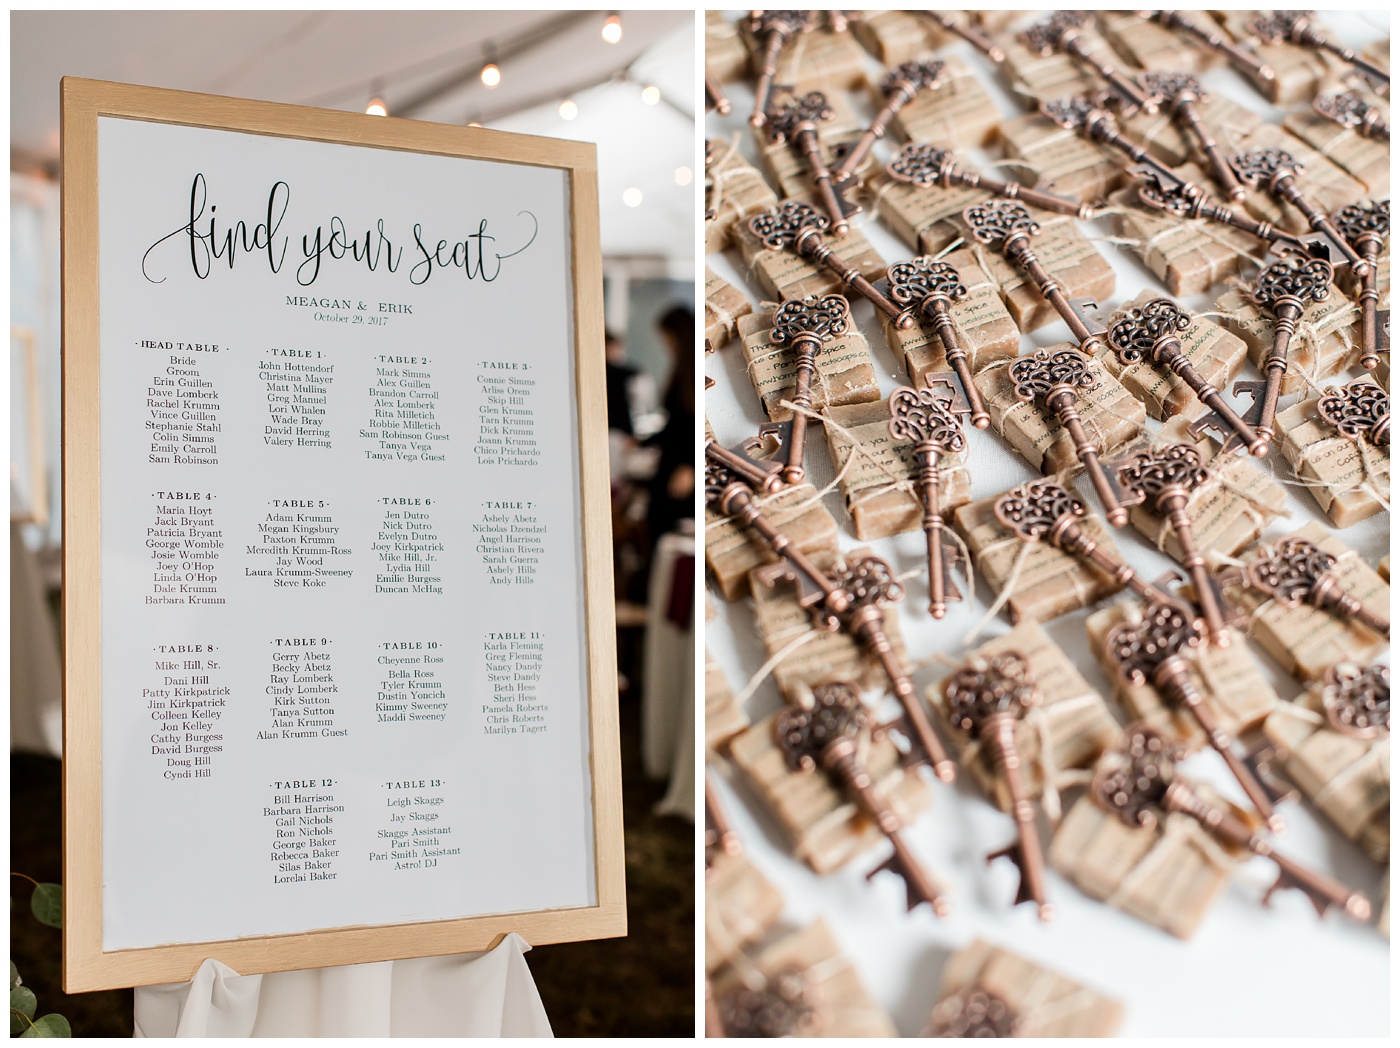 find your seat
MEAGAN & ERIK
October 29, 2017
· HEAD TABLE ·
Bride
Groom
Erin Guillen
Dave Lomberk
Rachel Krumm
Vince Guillen
Stephanie Stahl
Colin Simms
Emily Carroll
Sam Robinson
· TABLE 1 ·
John Hottendorf
Christina Mayer
Matt Mullins
Greg Manuel
Lori Whalen
Wade Bray
David Herring
Valery Herring
· TABLE 2 ·
Mark Simms
Alex Guillen
Brandon Carroll
Alex Lomberk
Rita Milletich
Robbie Milletich
Sam Robinson Guest
Tanya Vega
Tanya Vega Guest
· TABLE 3 ·
Connie Simms
Arliss Orem
Skip Hill
Glen Krumm
Tarn Krumm
Dick Krumm
Joann Krumm
Chico Prichardo
Lois Prichardo
· TABLE 4 ·
Maria Hoyt
Jack Bryant
Patricia Bryant
George Womble
Josie Womble
Joey O'Hop
Linda O'Hop
Dale Krumm
Barbara Krumm
· TABLE 5 ·
Adam Krumm
Megan Kingsbury
Paxton Krumm
Meredith Krumm-Ross
Jay Wood
Laura Krumm-Sweeney
Steve Koke
· TABLE 6 ·
Jen Dutro
Nick Dutro
Evelyn Dutro
Joey Kirkpatrick
Mike Hill, Jr.
Lydia Hill
Emilie Burgess
Duncan McHag
· TABLE 7 ·
Ashely Abetz
Nicholas Dzendzel
Angel Harrison
Christian Rivera
Sarah Guerra
Ashely Hills
Andy Hills
· TABLE 8 ·
Mike Hill, Sr.
Dani Hill
Patty Kirkpatrick
Jim Kirkpatrick
Colleen Kelley
Jon Kelley
Cathy Burgess
David Burgess
Doug Hill
Cyndi Hill
· TABLE 9 ·
Gerry Abetz
Becky Abetz
Ray Lomberk
Cindy Lomberk
Kirk Sutton
Tanya Sutton
Alan Krumm
Alan Krumm Guest
· TABLE 10 ·
Cheyenne Ross
Bella Ross
Tyler Krumm
Dustin Yoncich
Kimmy Sweeney
Maddi Sweeney
· TABLE 11 ·
Karla Fleming
Greg Fleming
Nancy Dandy
Steve Dandy
Beth Hess
Sheri Hess
Pamela Roberts
Chris Roberts
Marilyn Tagert
· TABLE 12 ·
Bill Harrison
Barbara Harrison
Gail Nichols
Ron Nichols
George Baker
Rebecca Baker
Silas Baker
Lorelai Baker
· TABLE 13 ·
Leigh Skaggs
Jay Skaggs
Skaggs Assistant
Pari Smith
Pari Smith Assistant
Astro! DJ